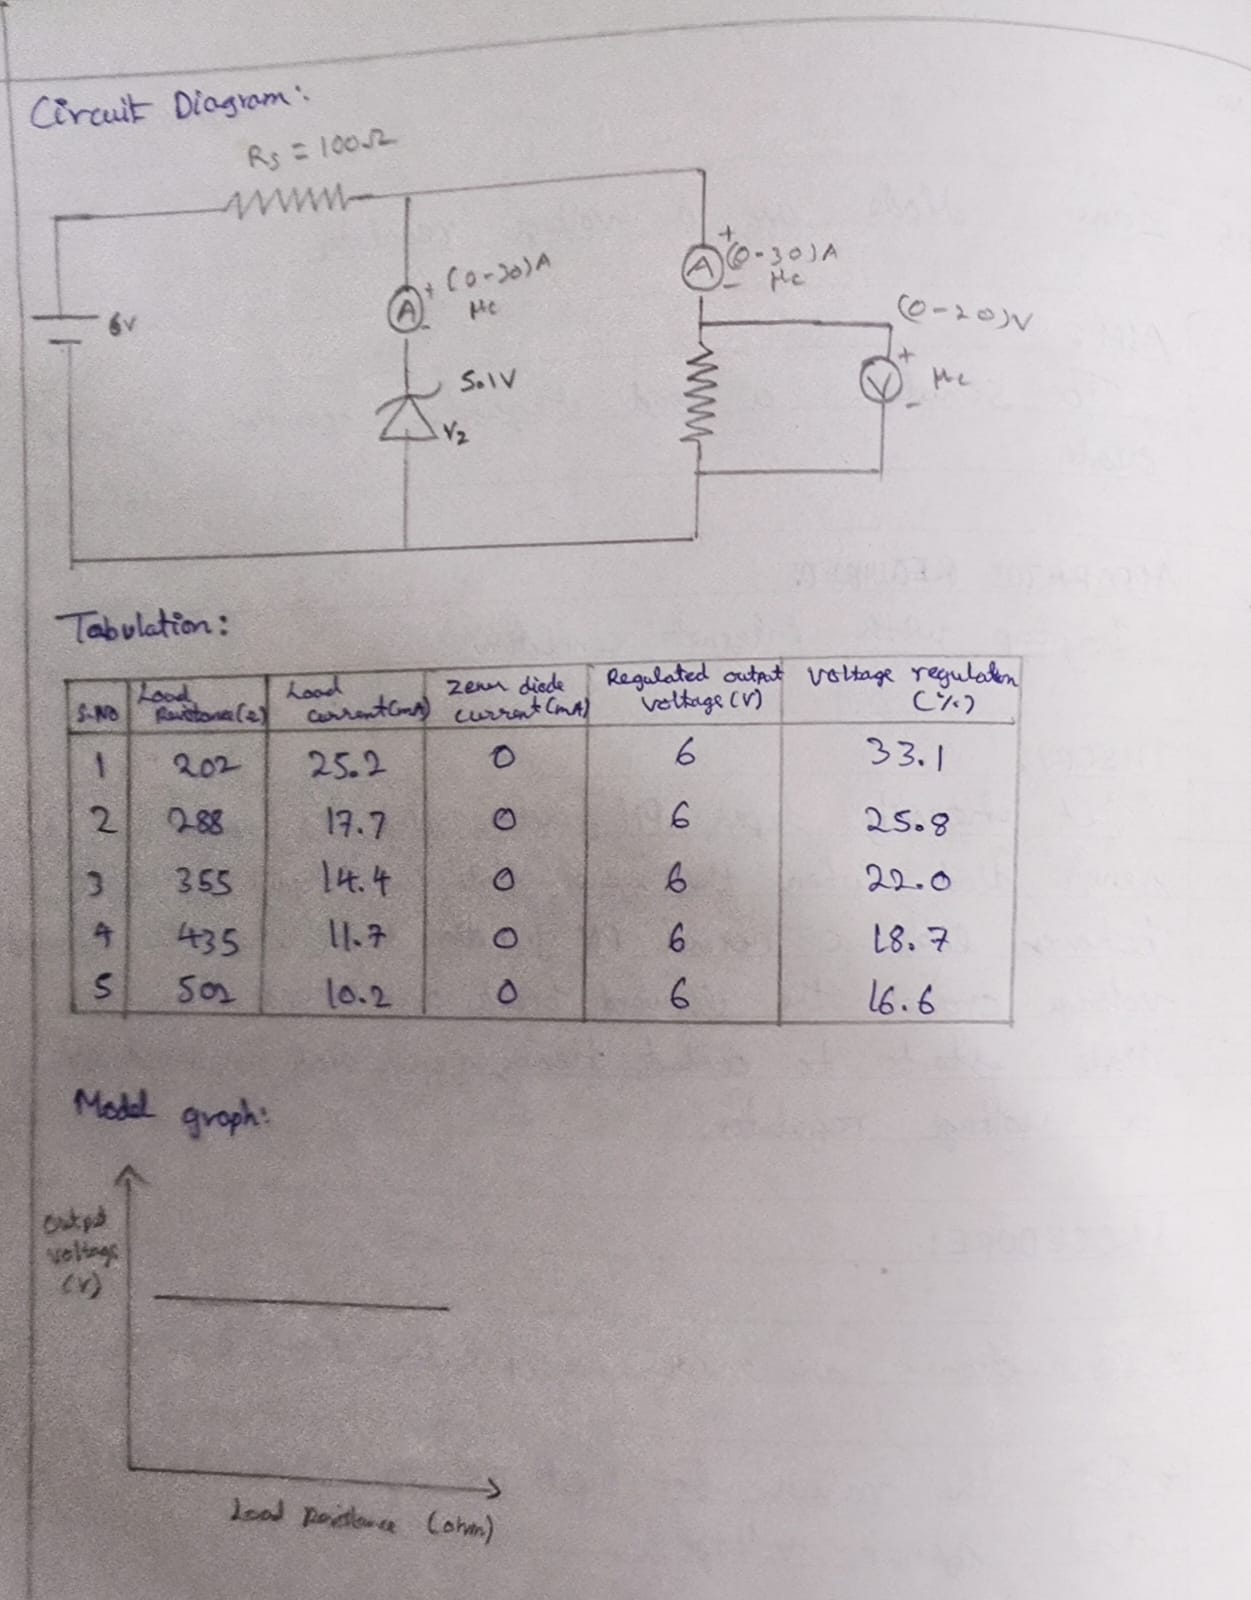 Circuit Diagram:
Rs = 100Ω
+ (0-30)A
A
Mc
-
+
(0-30)A
A
Mc
-
(0-20)V
+
V
Mc
-
6V
5.1V
Vz
Tabulation:
S.NO Load Resistance(Ω) Load current(mA) Zener diode current(mA) Regulated output voltage(V) Voltage regulation (%)
1 202 25.2 0 6 33.1
2 288 17.7 0 6 25.8
3 355 14.4 0 6 22.0
4 435 11.7 0 6 18.7
5 502 10.2 0 6 16.6
Model graph:
Output
voltage
(V)
Load Resistance (ohm)